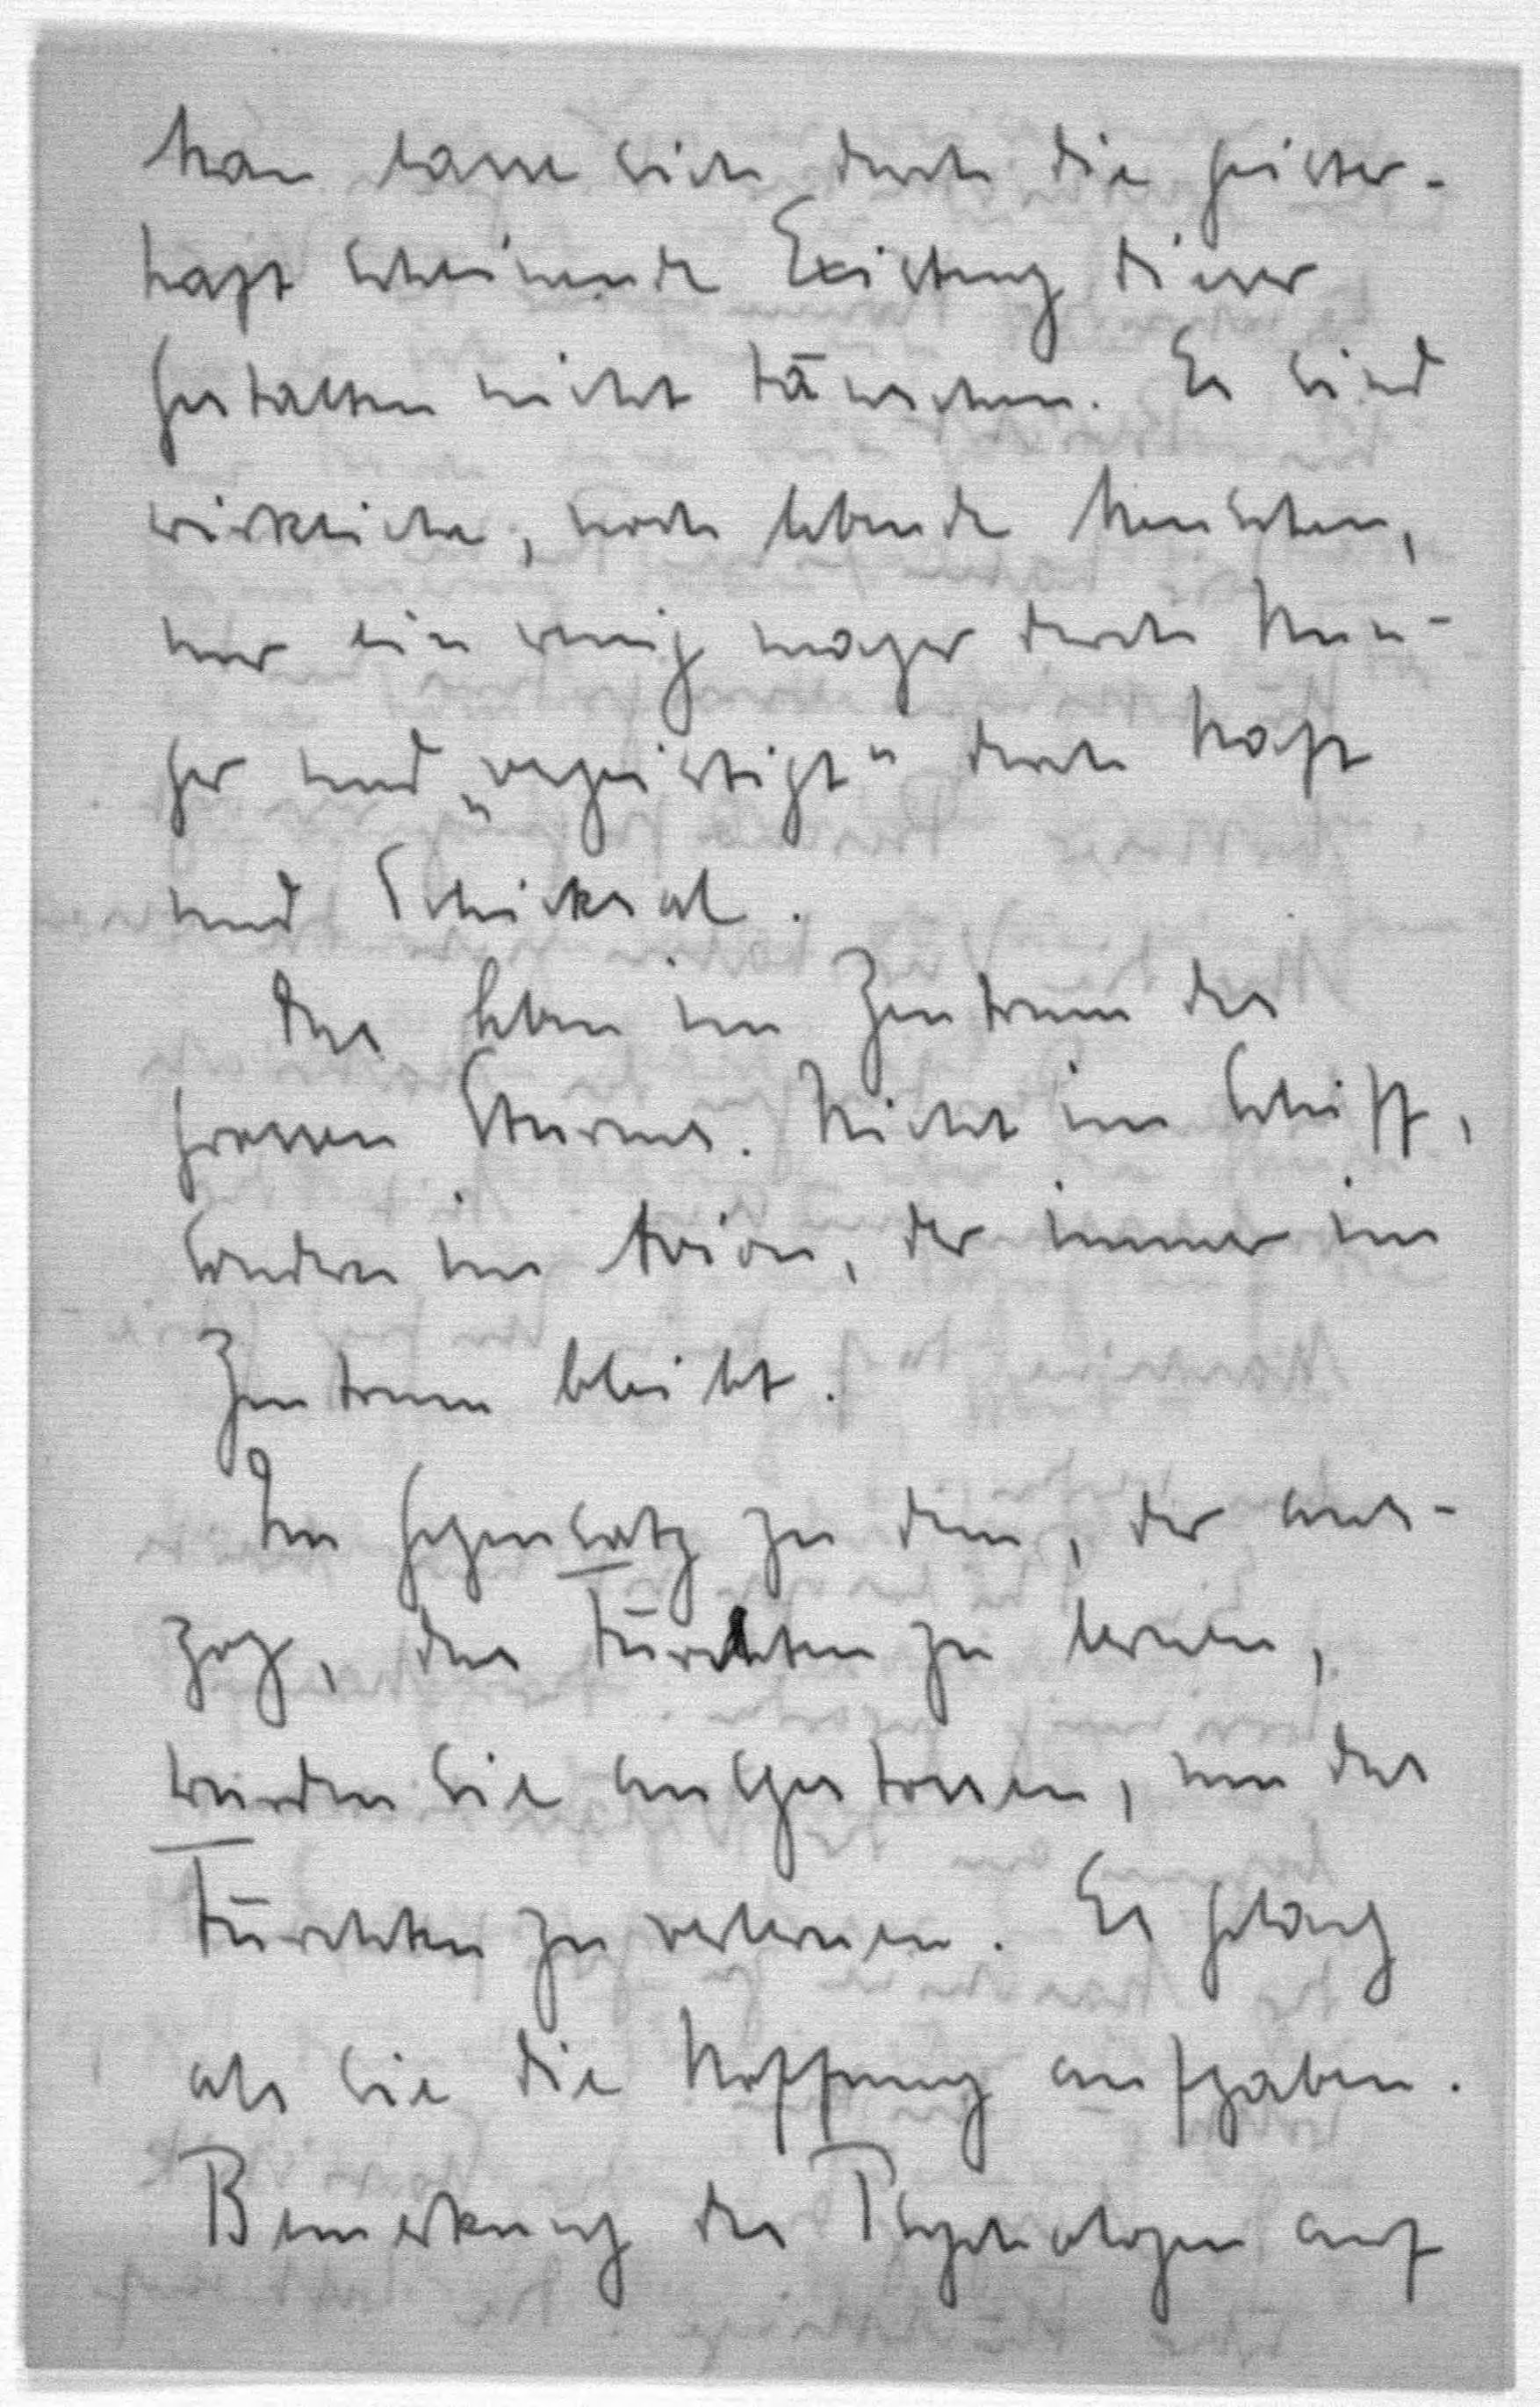 Man lasse sich durch die geister-
haft scheinende Existenz dieser
Gestalten nicht täuschen. Es sind
wirkliche, noch lebende Menschen,
nur ein wenig mager durch Hun-
ger und „vergeistigt" durch Haft
und Schicksal.
Das Leben im Zentrum des
grossen Sturms. Nicht im Schiff,
sondern im Avion, der immer im
Zentrum bleibt.
Im Gegensatz zu dem, der aus-
zog, das Fürchten zu lernen,
wurden sie ausgestossen, um das
Fürchten zu verlernen. Es gelang
als sie die Hoffnung aufgaben.
Bemerkung des Psychologen auf